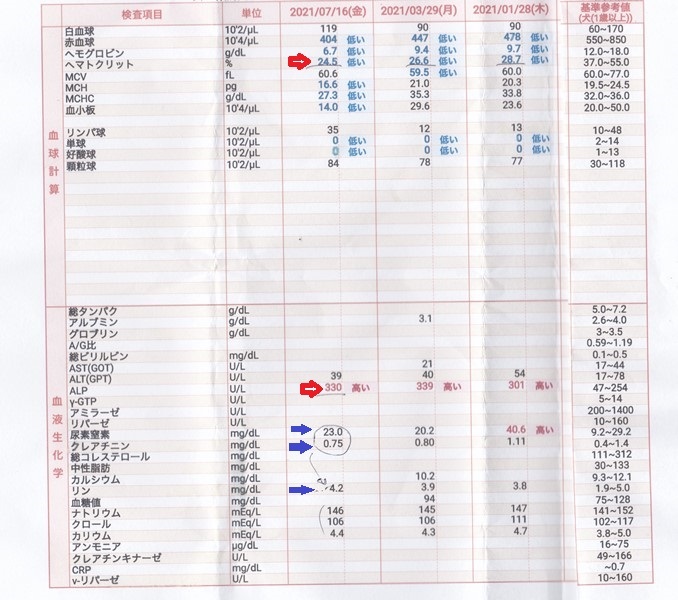 検査項目 単位 2021/07/16(金) 2021/03/29(月) 2021/01/28(木) 基準参考値
(犬(1歳以上))
血球計算
白血球 10˄2/μL 119 90 90 60~170
赤血球 10˄4/μL 404 低い 447 低い 478 低い 550~850
ヘモグロビン g/dL 6.7 低い 9.4 低い 9.7 低い 12.0~18.0
ヘマトクリット % 24.5 低い 26.6 低い 28.7 低い 37.0~55.0
MCV fL 60.6 59.5 低い 60.0 60.0~77.0
MCH pg 16.6 低い 21.0 20.3 19.5~24.5
MCHC g/dL 27.3 低い 35.3 33.8 32.0~36.0
血小板 10˄4/μL 14.0 低い 29.6 23.6 20.0~50.0
リンパ球 10˄2/μL 35 12 13 10~48
単球 10˄2/μL 0 低い 0 低い 0 低い 2~14
好酸球 10˄2/μL 0 低い 0 低い 0 低い 1~13
顆粒球 10˄2/μL 84 78 77 30~118
血液生化学
総タンパク g/dL 5.0~7.2
アルブミン g/dL 3.1 2.6~4.0
グロブリン g/dL 3~3.5
A/G比 0.59~1.19
総ビリルビン mg/dL 0.1~0.5
AST(GOT) U/L 21 17~44
ALT(GPT) U/L 39 40 54 17~78
ALP U/L 330 高い 339 高い 301 高い 47~254
γ-GTP U/L 5~14
アミラーゼ U/L 200~1400
リパーゼ U/L 10~160
尿素窒素 mg/dL 23.0 20.2 40.6 高い 9.2~29.2
クレアチニン mg/dL 0.75 0.80 1.11 0.4~1.4
総コレステロール mg/dL 111~312
中性脂肪 mg/dL 30~133
カルシウム mg/dL 10.2 9.3~12.1
リン mg/dL 4.2 3.9 3.8 1.9~5.0
血糖値 mg/dL 94 75~128
ナトリウム mEq/L 146 145 147 141~152
クロール mEq/L 106 106 111 102~117
カリウム mEq/L 4.4 4.3 4.7 3.8~5.0
アンモニア μg/dL 16~75
クレアチンキナーゼ U/L 49~166
CRP mg/dL ~0.7
v-リパーゼ U/L 10~160